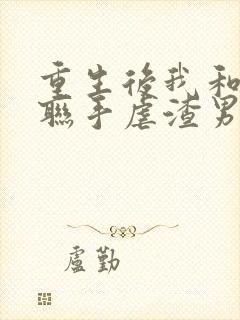 重生後我和
聯手虐渣男
盧勤